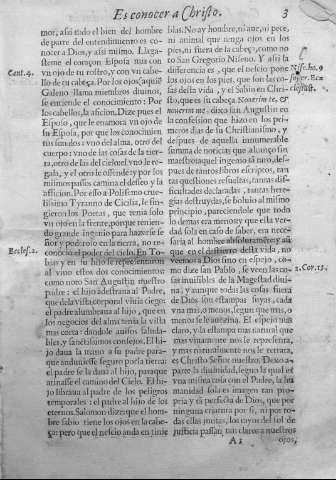 Es conocer a Christo. 3
mor, assi todo el bien del hombre
de parte del entendimiento es co-
nocer a Dios, y assi mismo. Llaga-
steme el coraçon Esposa mia con
vn ojo de tu rostro, y con vn cabe-
llo de tu cabeça. Por los ojos (aquiẽ
Cant. 4.
Galeno llama miembros diuinos,
se entiende el conocimiento: Por
los cabellos, la aficion. Dize pues el
Esposo, que le enamora vn ojo de
su Esposa, por que los conocimien
tos son dos: vno del alma, otro del
cuerpo: vno de las cosas de la tier-
ra, otro de las del cielo: el vno le re-
gala, y el otro le ofende: y por los
mismos passos camina el desseo y la
aficion. Por esso a Polifemo crue-
lissimo Tyranno de Cicilia, le fin-
gieron los Poetas, que tenia solo
vn ojo en la frente, porque tenien-
do grande ingenio para hazerse se
ñor y poderoso en la tierra, no re-
conocia el poder del cielo. En To-
Eccles. 2.
bias y en su hijo se representaron
al viuo estos dos conocimientos:
como noto San Augustin nuestro
padre: el hijo adestraua al Padre,
que de la vista corporal viuia ciego:
el padre alumbraua al hijo, que en
los negocios del alma tenia la vista
mas corta: dandole auisos saluda-
bles, y sanctissimos consejos. El hi-
jo daua la mano a su padre para-
que anduuiesse seguro por la tierra:
el padre se la daua al hijo, paraque
atinasse el camino del Cielo. El hi-
jo libraua al padre de los peligros
temporales: el padre al hijo de los
eternos. Salomon dize que el hom-
bre sabio tiene los ojos en la cabe-
ça: pero que el nescio anda en tinie
blas. No ay hombre, ni aue, ni pece,
ni animal que tenga ojos en los
pies, ni fuera de la cabeça, como no
to San Gregorio Niseno. Y assi la
differencia es, que el nescio pone
Niss. ho. 9
los ojos en los pies, que son las co-
sas desta vida, y el Sabio en Chri-
sto, que es su cabeça. Nouerim te, &
nouerim me, dixo san Augustin en
la confession que hizo en los pri-
meros dias de su Christianismo, y
despues de aquella innumerable
summa de noticas que alcanço sin
maestro aquel ingenio tã raro, des-
pues de tantos libros escriptos, tan
tas questiones resueltas, tantas dif-
ficultades declaradas, tantas here-
gias destruydas, se boluio al mismo
principio, pareciendole que todo
lo demas era menos: y que esta ver-
dad sola en caso de saber, era neces-
saria al hombre
que en el destierro desta vida, no
veemos a Dios sino en espejo, co-
mo dize san Pablo, se veen las co-
1. Cor. 13.
sas inuisibles de la Magestad diui-
na, y aunque todas las cosas fuera
de Dios son estampas suyas, cada
vna mas, o menos, segun que mas, o
menos se le auezina. El espejo mas
claro, y la estampa mas natural que
mas viuamente nos le representa,
y mas naturalmente nos le retrata,
es Christo Señor nuestro. Dexo a
parte la diuinidad, segun la qual es
vna misma cosa con el Padre, la hu-
manidad sola es imagen tan pro-
pria y tã perfecta de Dios, que por
ninguna criatura por si, ni por to-
das ellas juntas, los rayos del sol de
justicia passan tan claros a nuestros
A 2 ojos,